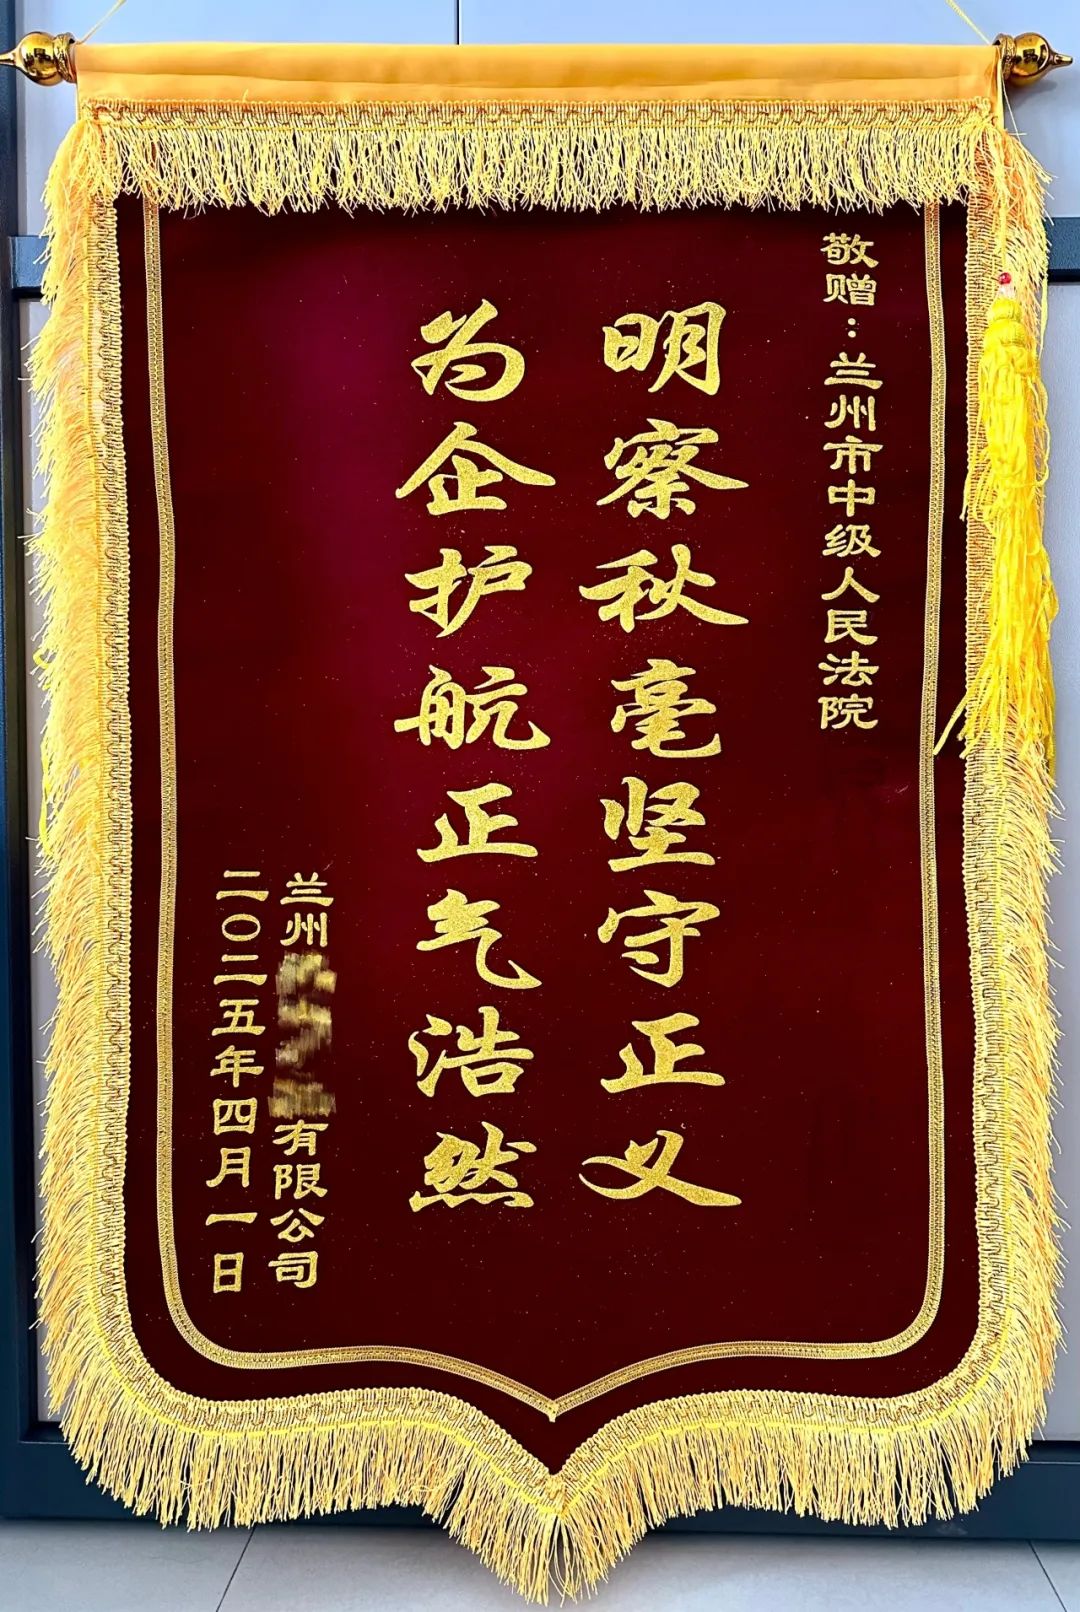 敬赠：兰州市中级人民法院
明察秋毫坚守正义
为企护航正气浩然
兰州有限公司
二〇二五年四月一日